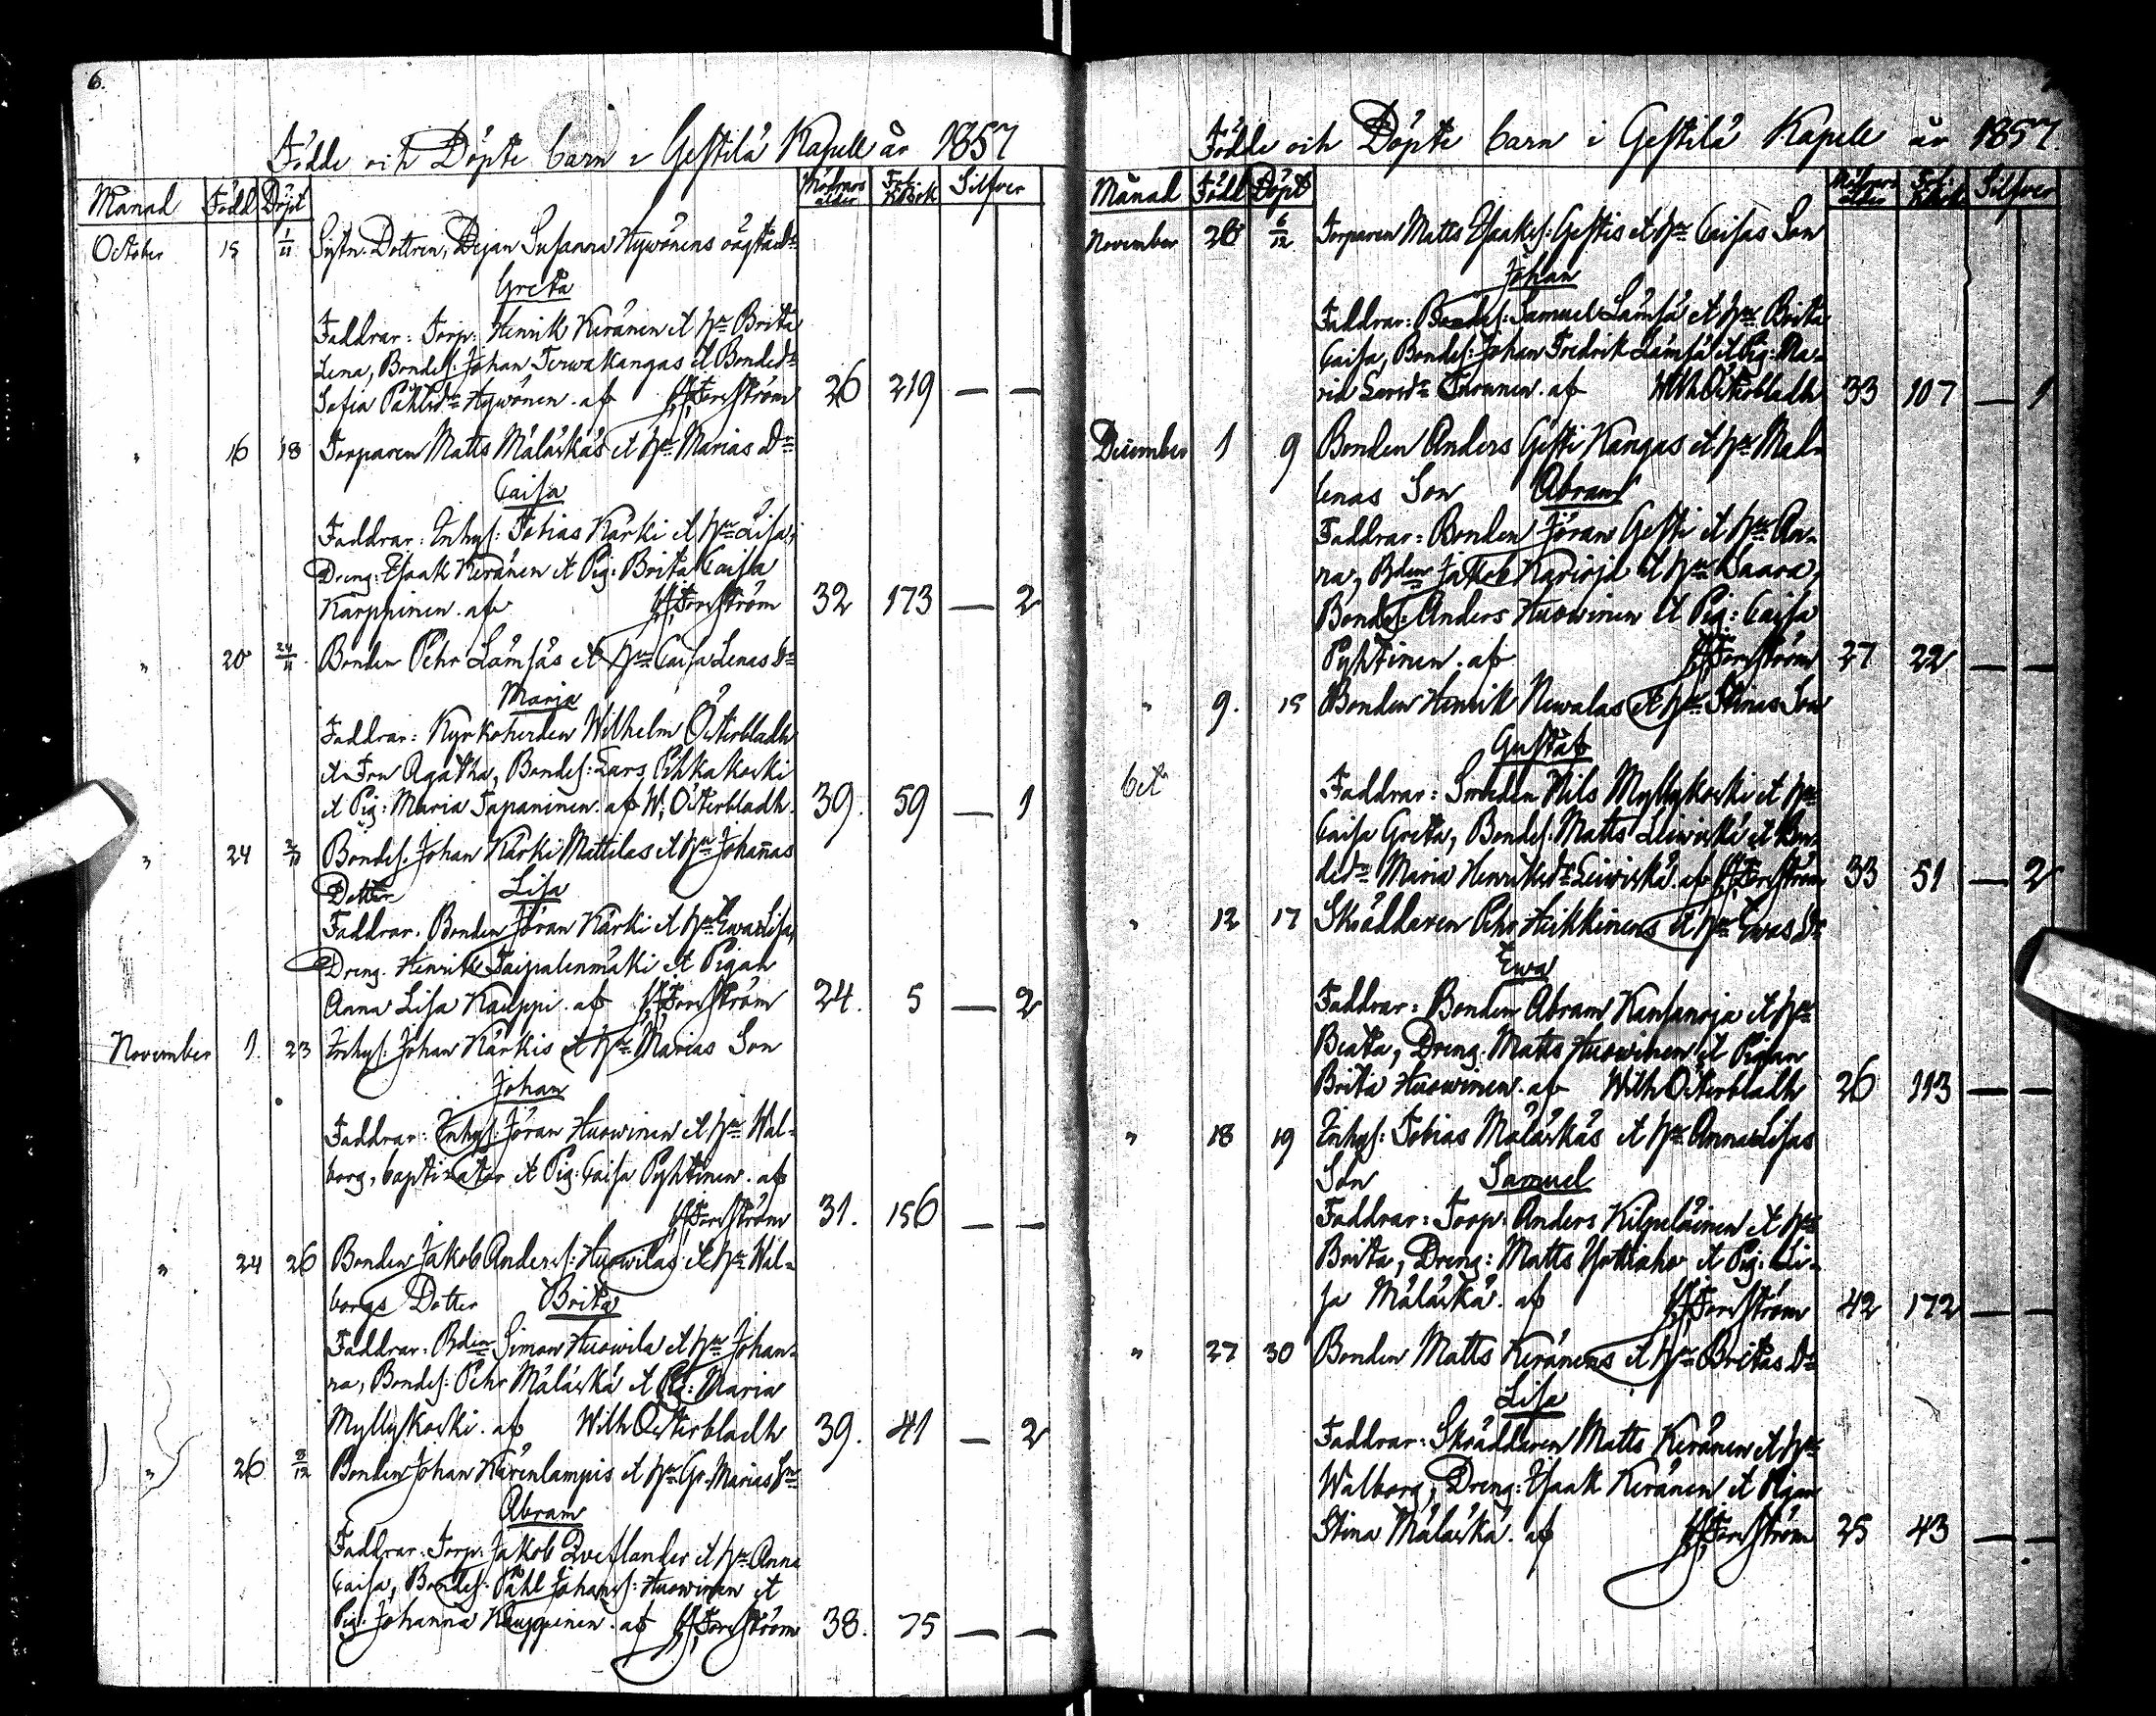 6.
Födde och Döpte barn i Gestilä Kapell år 1857
Månad Född Döpt Modrens ålder Silfver
October 15 1/11 Sytn. Dottren, Pigan Susanna Hywönens oägta dr
Greta
Faddrar: Torp: Henrik Keränen et hu Brita
Lena, Bondes: Johan Terwakangas et Bonded:
Sofia Påhlsdr Hywönen. af HJForsström 26 219 — —
" 16 18 Torparen Matts Mäläskäs et hu Marias Dr
Caisa
Faddrar: Inhys: Tobias Kärki et hu Lisa,
Dreng: Isaak Keränen et Pig: Brita Caisa
Karppinen. af HJForsström 32 173 — 2
" 20 24/11 Bonden Pehr Lämsäs et hu Caisa Lenas Dr
Maria
Faddrar: Kyrkoherden Wilhelm Österbladh
et Fru Agatha, Bondes: Lars Pihkakoski
et Pig: Maria Tapaninen. af W. Österbladh. 39. 59 — 1
" 24 Bondes. Johan Kärki Mattilas et hu Johannas
Dotter Lisa
Faddrar. Bonden Jöran Kärki et hu Ewa Lisa,
Dreng. Henrik Taipalenmäki et Pigan
Anna Lisa Kauppi. af HJForsström 24. 5 — 2
November 1. 23 Inhys. Johan Kärkis et hu Marias Son
Johan
Faddrar: Inhys: Jöran Huowinen et hu Wal-
borg, baptizator et Pig: Caisa Pyhtinen. af
HJForsström 31. 156 — —
" 24 26 Bonden Jakob Anders: Huowilas et hu Wal-
borgs Dotter Brita
Faddrar: Bden Simon Huowila et hu Johan-
na, Bondes: Pehr Mäläskä et Pig: Maria
Myllykoski. af Wilh Österbladh 39. 41 — 2
" 26 3/12 Bonden Johan Kärenlampis et hu Gr. Marias Sn
Abram
Faddrar: Torp: Jakob Zvetlander et hu Anna
Caisa, Bondes: Påhl Johans: Huowinen et
Pig: Johanna Kauppinen. af HJForsström 38. 75 — —
Födde och Döpte barn i Gestilä Kapell år 1857.
Månad Född Döpt Modrens ålder Silfver
November 28 6/12 Torparen Matts Isaks: Gestis et hu Caisas Son
Johan
Faddrar: Bondes: Samuel Lämsä et hu Brita
Caisa, Bondes: Johan Fredrik Lämsä et Pig: Ma-
ria Larsdr Turunen. af Wilh Österbladh 33 107 — 1
December 1 9 Bonden Anders Gesti Kangas et hu Mal-
lenas Son Abram
Faddrar: Bonden Jöran Gesti et hu An-
na, Bden Jakob Karioja et hu Waara,
Bondes: Anders Huowinen et Pig: Caisa
Pyhtinen. af HJForsström 27 22 — —
" 9. 15 Bonden Henrik Newalas et hu Stinas Son
Gustaf
bet Faddrar: Smeden Nils Myllykoski et hu
Caisa Greta, Bondes: Matts Leiwiskä et Bon-
dedr Maria Henriksdr Leiwiskä. af HJForsström 33 51 — 2
" 12 17 Skräddaren Pehr Heikkinens et hu Ewas Dr
Ewa
Faddrar: Bonden Abram Kansanoja et hu
Beata, Dreng: Matts Huowinen et Pigan
Brita Huowinen. af Wilh Österbladh 26 113 — —
" 18 19 Inhys: Tobias Mäläskäs et hu Anna Lisas
Son Samuel
Faddrar: Torp: Anders Kilpeläinen et hu
Brita, Dreng: Matts Yottiaho et Pig: Li-
sa Mäläskä. af HJForsström 42 172 — —
" 27 30 Bonden Matts Keränens et hu Britas Dr
Lisa
Faddrar: Skräddaren Matts Keränen et hu
Walborg, Dreng: Isaak Keränen et Pigan
Stina Mäläskä. af HJForsström 25 43 — —